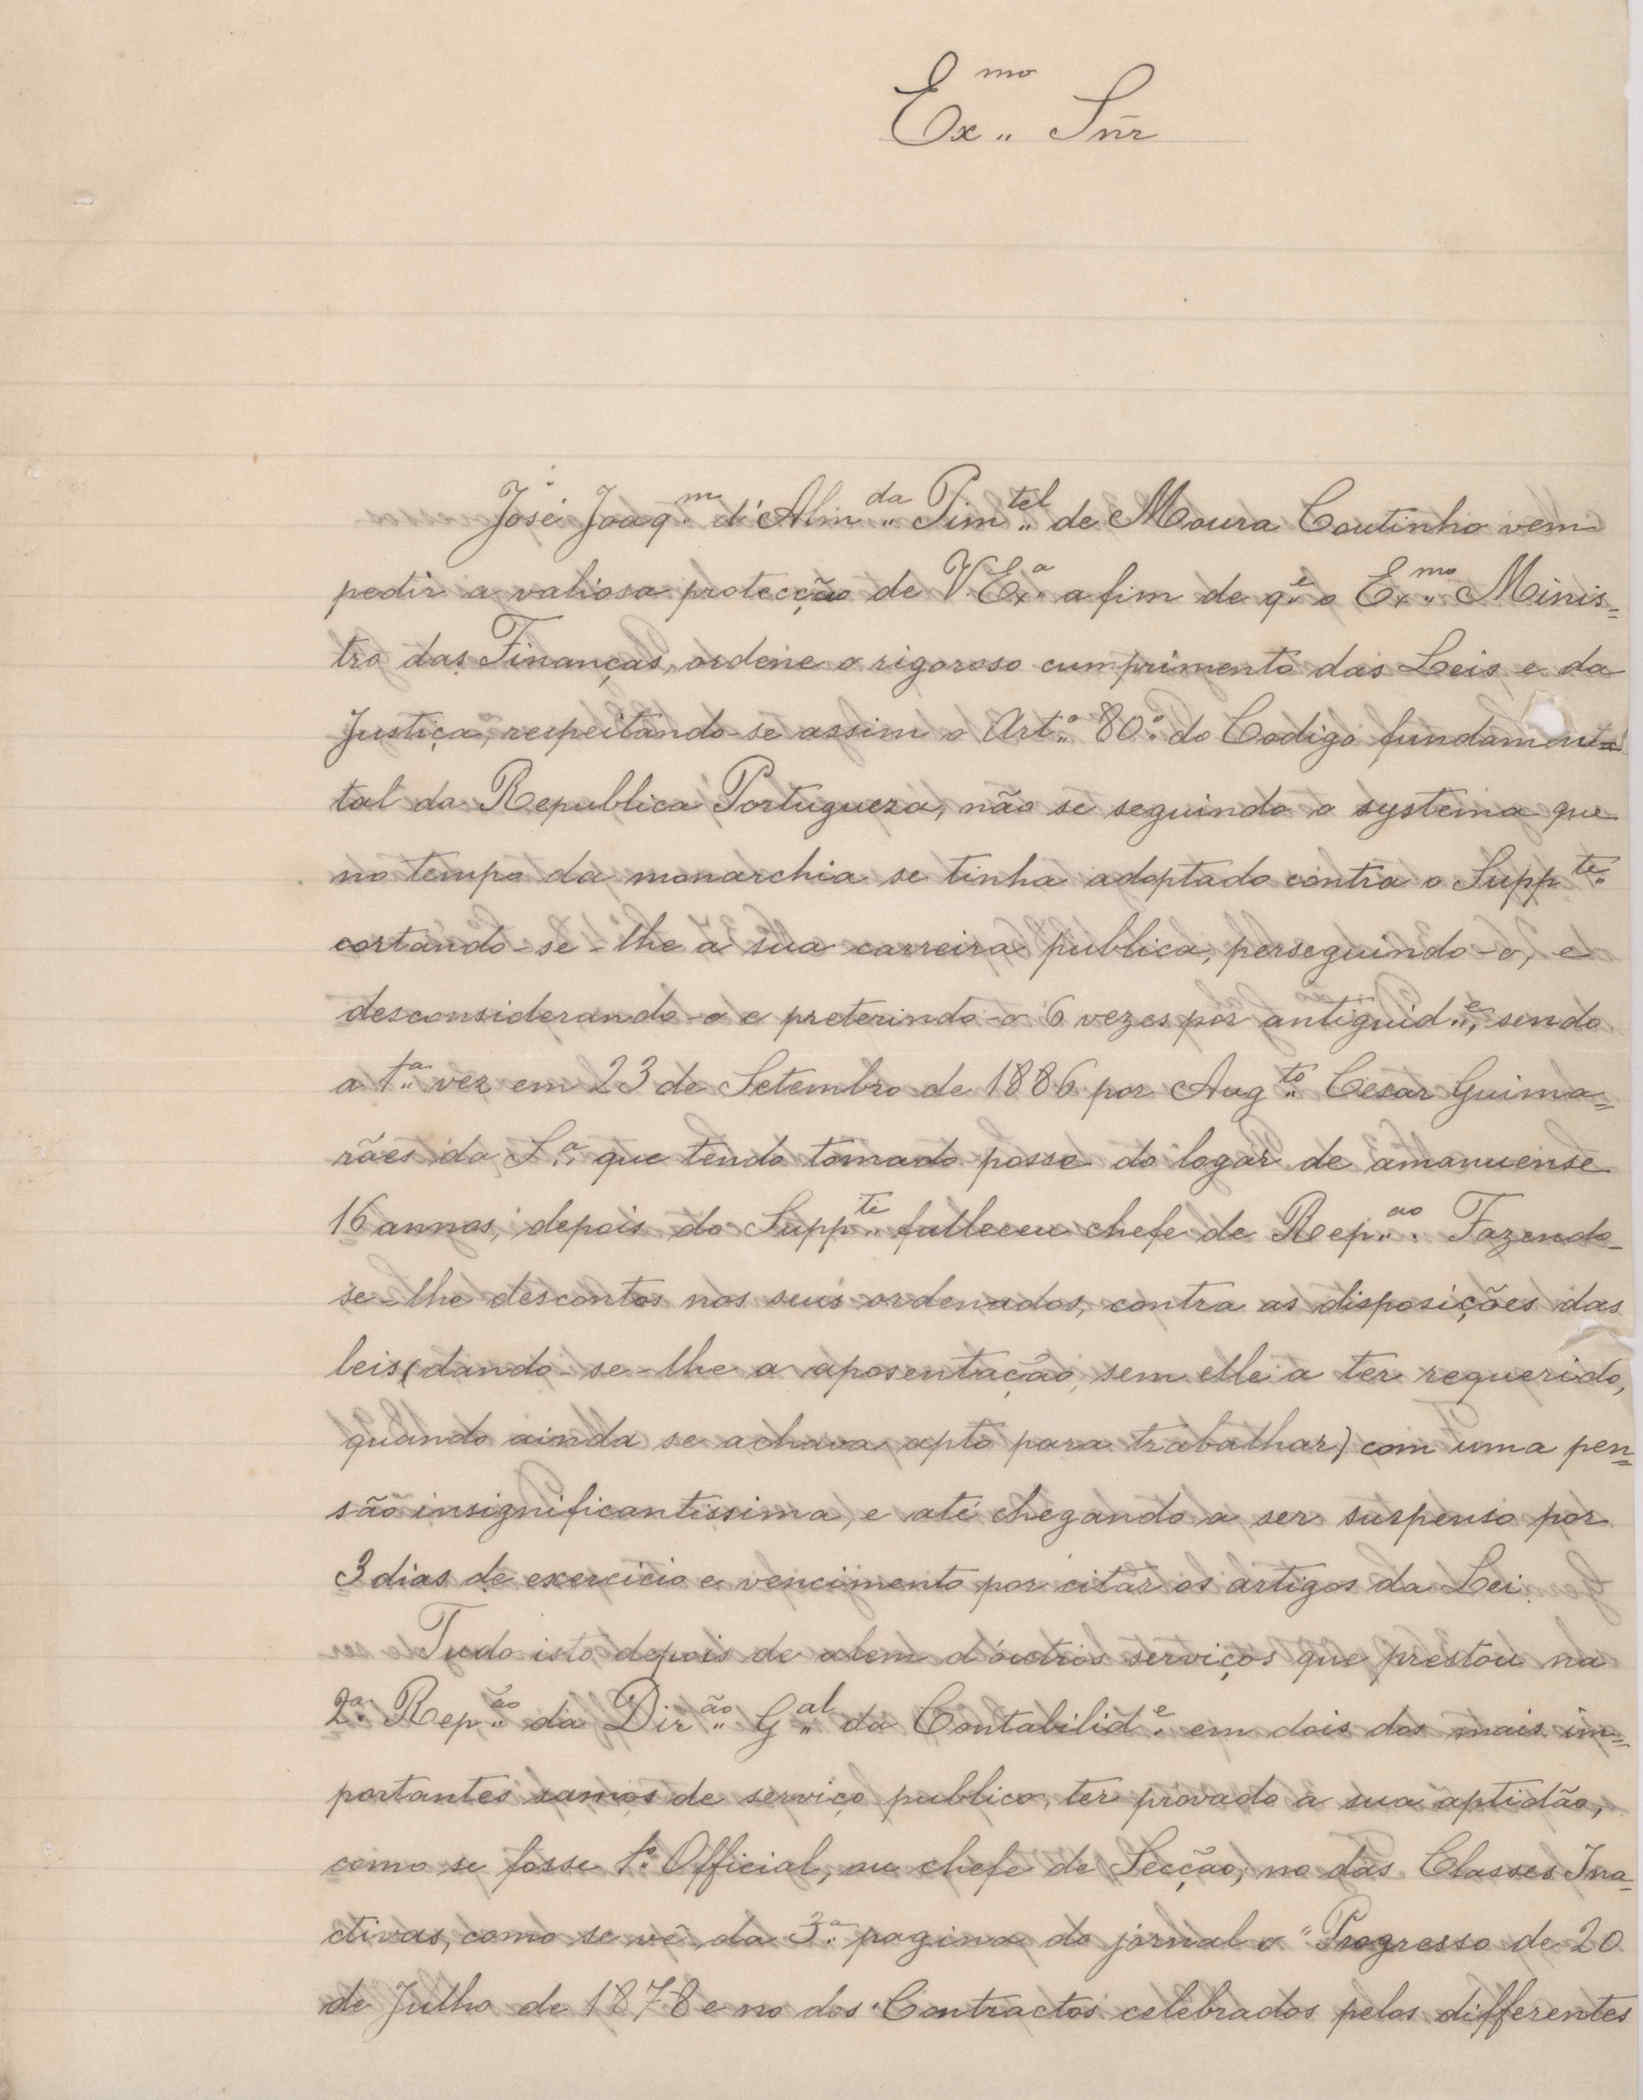 Ex.mo Snr
José Joaq.m d'Alm.da Pim.tel de Moura Coutinho vem
pedir a valiosa protecção de V. Ex.a a fim de q.e o Ex.mo Minis=
tro das Finanças, ordene o rigoroso cumprimento das Leis e da
Justiça, respeitando-se assim o Art.o 80.o do Codigo fundamen=
tal da Republica Portugueza, não se seguindo o systema que
no tempo da monarchia se tinha adoptado contra o Supp.te
cortando-se-lhe a sua carreira publica, perseguindo-o, e
desconsiderando-o e preterindo-o 6 vezes por antiguid.e, sendo
a 1.a vez em 23 de Setembro de 1886 por Aug.to Cesar Guima=
rães da S.a, que tendo tomado posse do logar de amanuense
16 annos, depois do Supp.te falleceu chefe de Rep.ao. Fazendo-
se-lhe descontos nos seus ordenados, contra as disposições das
leis (dando-se-lhe a aposentação, sem elle a ter requerido,
quando ainda se achava apto para trabalhar) com uma pen=
são insignificantissima, e até chegando a ser suspenso por
3 dias de exercicio e vencimento por citar os artigos da Lei.
Tudo isto, depois de alem d'outros serviços que prestou na
2.a Rep.ão da Dir.ão G.al da Contabilid.e em dois dos mais im=
portantes ramos de serviço publico, ter provado a sua aptidão,
como se fosse 1.o Official, ou chefe de Secção, no das Classes Ina-
ctivas, como se vê da 3.a pagina do jornal o "Progresso de 20
de Julho de 1878 e no dos Contractos celebrados pelos differentes